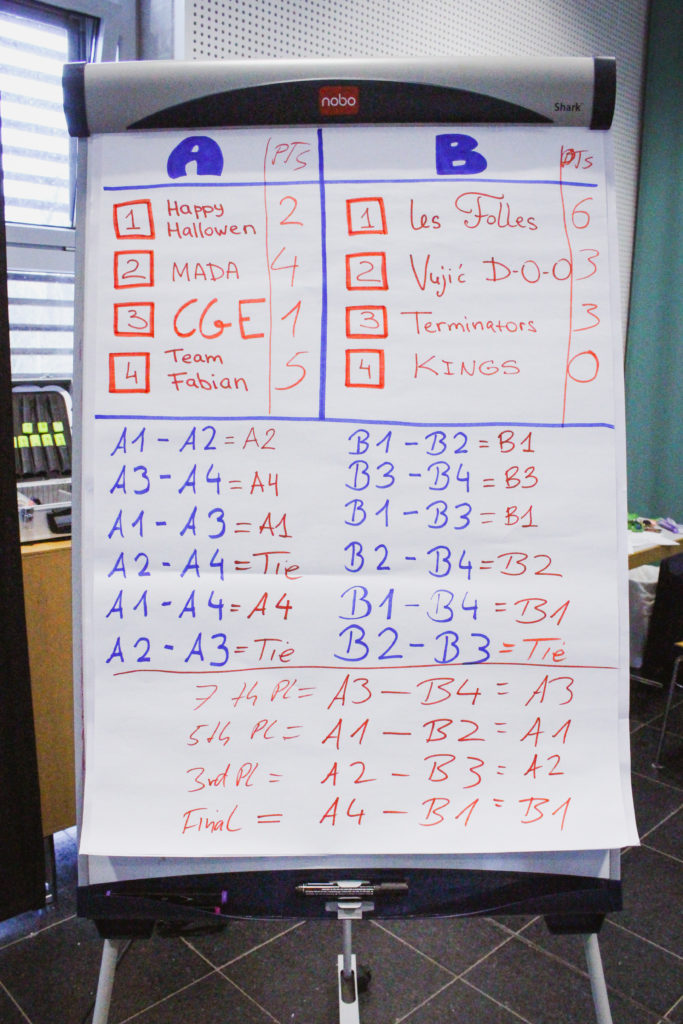 nobo
Shark
A PTS B PTS
1 Happy Hallowen 2
2 MADA 4
3 CGE 1
4 Team Fabian 5
1 Les Folles 6
2 Vujić D-O-O 3
3 Terminators 3
4 KINGS 0
A1 - A2 = A2
A3 - A4 = A4
A1 - A3 = A1
A2 - A4 = Tie
A1 - A4 = A4
A2 - A3 = Tie
B1 - B2 = B1
B3 - B4 = B3
B1 - B3 = B1
B2 - B4 = B2
B1 - B4 = B1
B2 - B3 = Tie
7th Pl = A3 - B4 = A3
5th Pl = A1 - B2 = A1
3rd Pl = A2 - B3 = A2
Final = A4 - B1 = B1